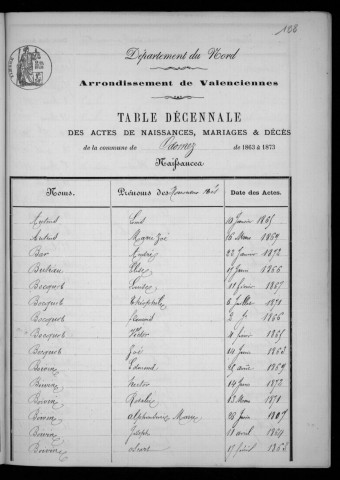 108
Département du Nord
Arrondissement de Valenciennes
TABLE DÉCENNALE
DES ACTES DE NAISSANCES, MARIAGES & DÉCÈS
de la commune de Odomez de 1863 à 1873
Naissances
Noms. Prénoms des Nouveaux Nés Date des Actes.
Auteuil Emile 10 Janvier 1865
Auteuil Marie Zoé 16 Mars 1869
Bar André 22 Janvier 1872
Buleau Elise 17 Juin 1866
Bocquet Louise 11 février 1867
Bocquet Théophile 6 Juillet 1871
Bocquet 1866
Bocquet Victor février 1865
Bocquet Zoé 14 Juin 1863
Bouvin Edmond 25 août 1869
Bouvin Hector 14 Juin 1872
Bouvin Rosalie 13 Mars 1871
Bouvin Alphonsine Marie 28 Juin 1867
Bouvin Joseph 18 avril 1864
Bouvin Albert 17 février 1863